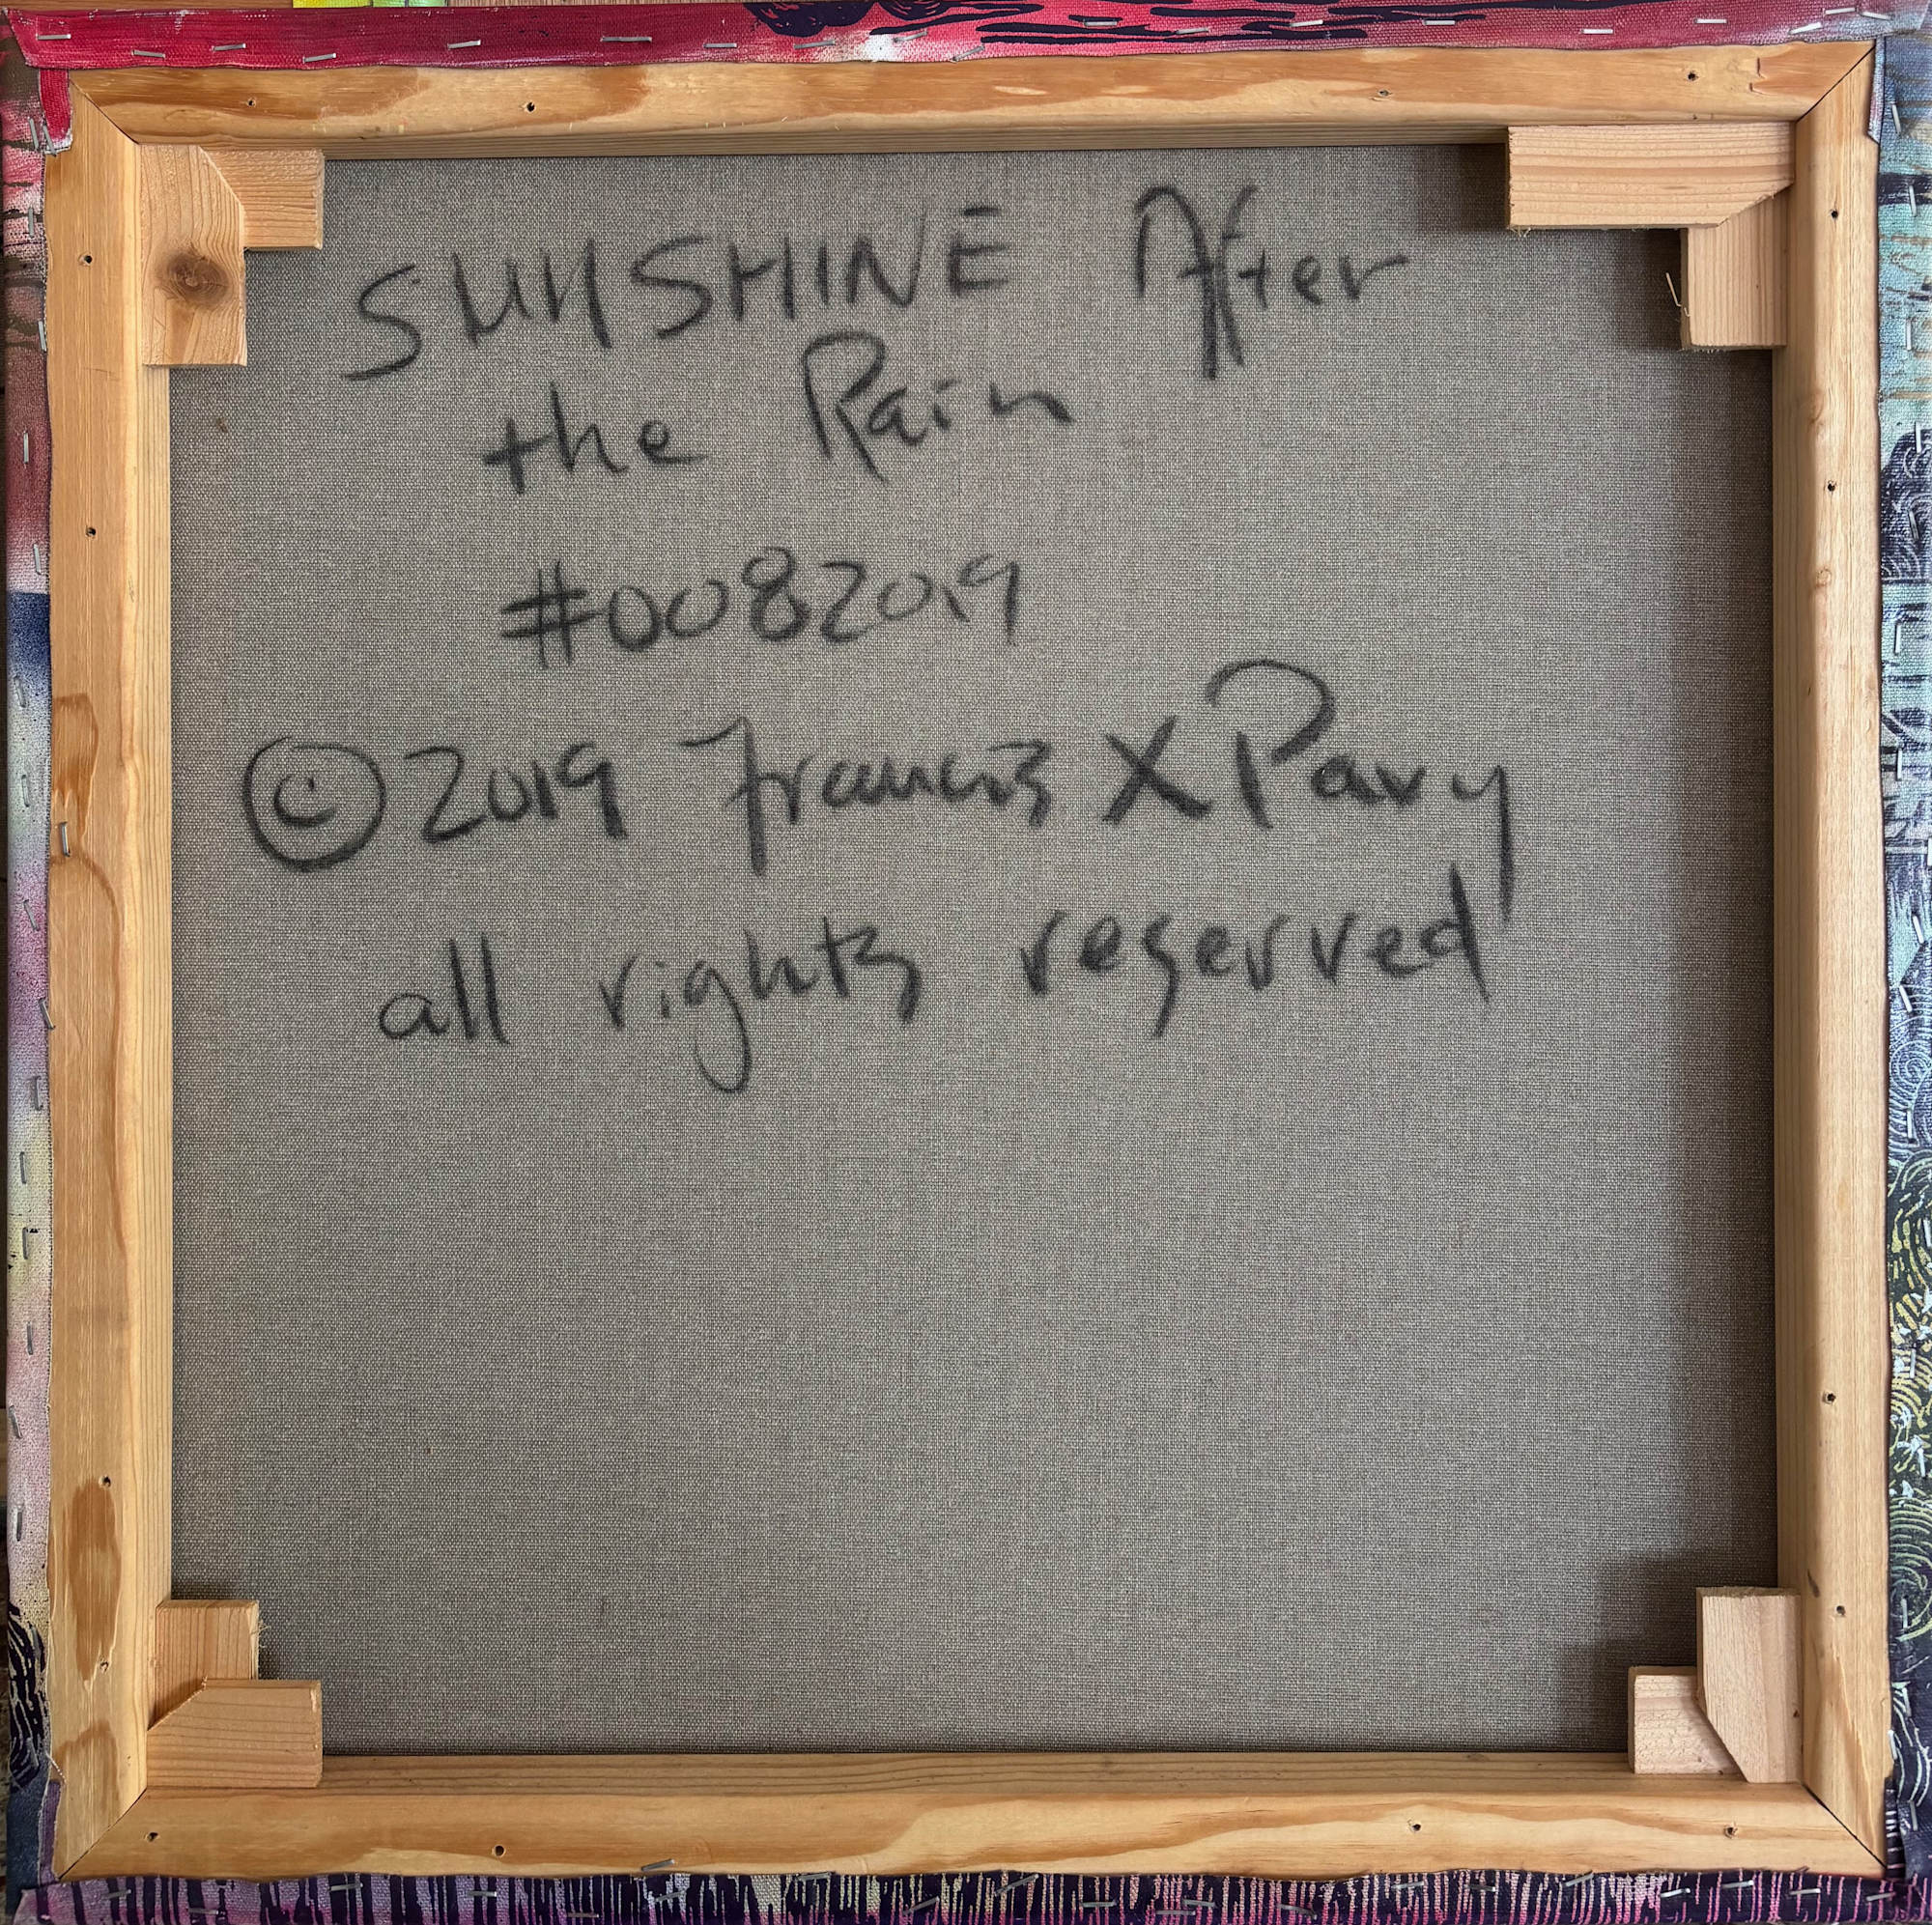 SUNSHINE After
the Rain
#0082019
©2019 Francis X Pavy
all rights reserved